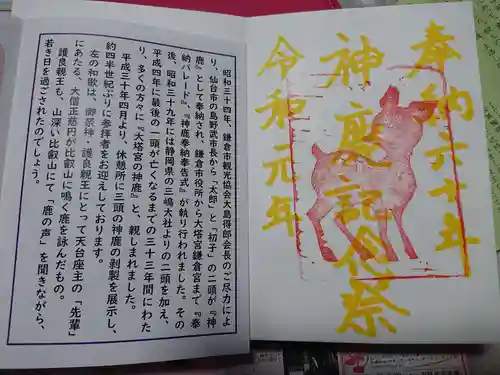 奉納六十五年
神鹿記念祭
令和元年
昭和三十四年、鎌倉市観光協会大島得郎会長のご尽力によ
り、仙台市の島野武市長から『太郎』と『初子』の二頭が『神
鹿』として奉納され、鎌倉市役所から大塔宮鎌倉宮まで『奉
納パレード』、『神鹿奉納奉告式』が執り行われました。その
後、昭和三十九年には静岡県の三嶋大社よりの二頭を加え、
平成四年に最後の一頭が亡くなるまでの三十三年間にわた
り、多くの方々に『大塔宮の神鹿』と、親しまれました。
平成三十年四月より、休憩所に三頭の神鹿の剥製を展示し、
約四半世紀ぶりに参拝者をお迎えしております。
左の和歌は、御祭神・護良親王にとって天台座主の「先輩」
にあたる、大僧正慈円が比叡山に鳴く鹿を詠んだもの。
護良親王も、山深い比叡山にて「鹿の声」を聞きながら、
若き日を過ごされたのでしょう。